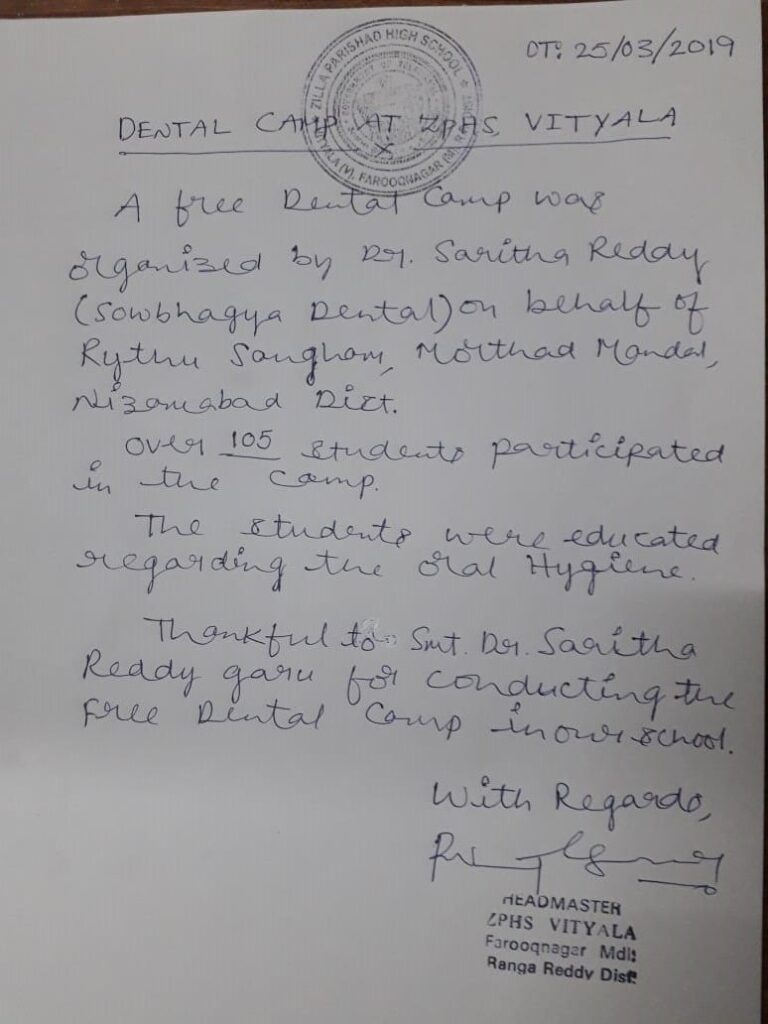 ZILLA PARISHAD HIGH SCHOOL
VITYALA (V), FAROOQNAGAR (M), R.R.
DT: 25/03/2019
DENTAL CAMP AT ZPHS, VITYALA
A free Dental Camp was
organized by Dr. Saritha Reddy
(Sowbhagya Dental) on behalf of
Rythu Sangham, Morthad Mandal,
Nizamabad Dist.
Over 105 students participated
in the Camp.
The students were educated
regarding the oral Hygiene.
Thankful to Smt. Dr. Saritha
Reddy garu for conducting the
Free Dental Camp in our school.
With Regards,
HEADMASTER
ZPHS VITYALA
Farooqnagar Mdl:
Ranga Reddy Dist: